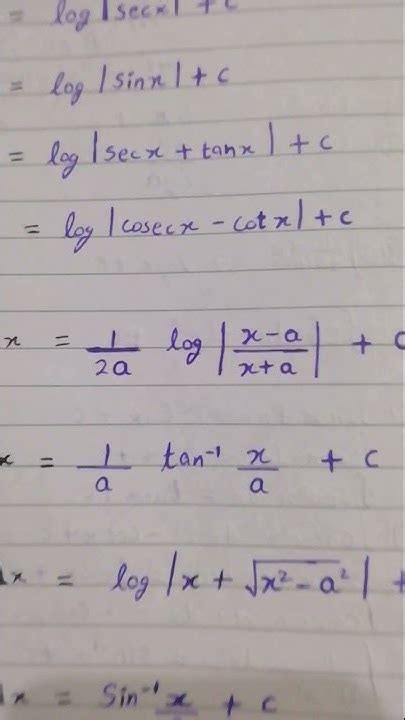 = log |secx| + c
= log |sinx| + c
= log |secx + tanx| + c
= log |cosecx - cotx| + c
x = 1/2a log |x-a/x+a| + c
x = 1/a tan⁻¹ x/a + c
dx = log |x + √x²-a²| +
dx = Sin⁻¹ x + c